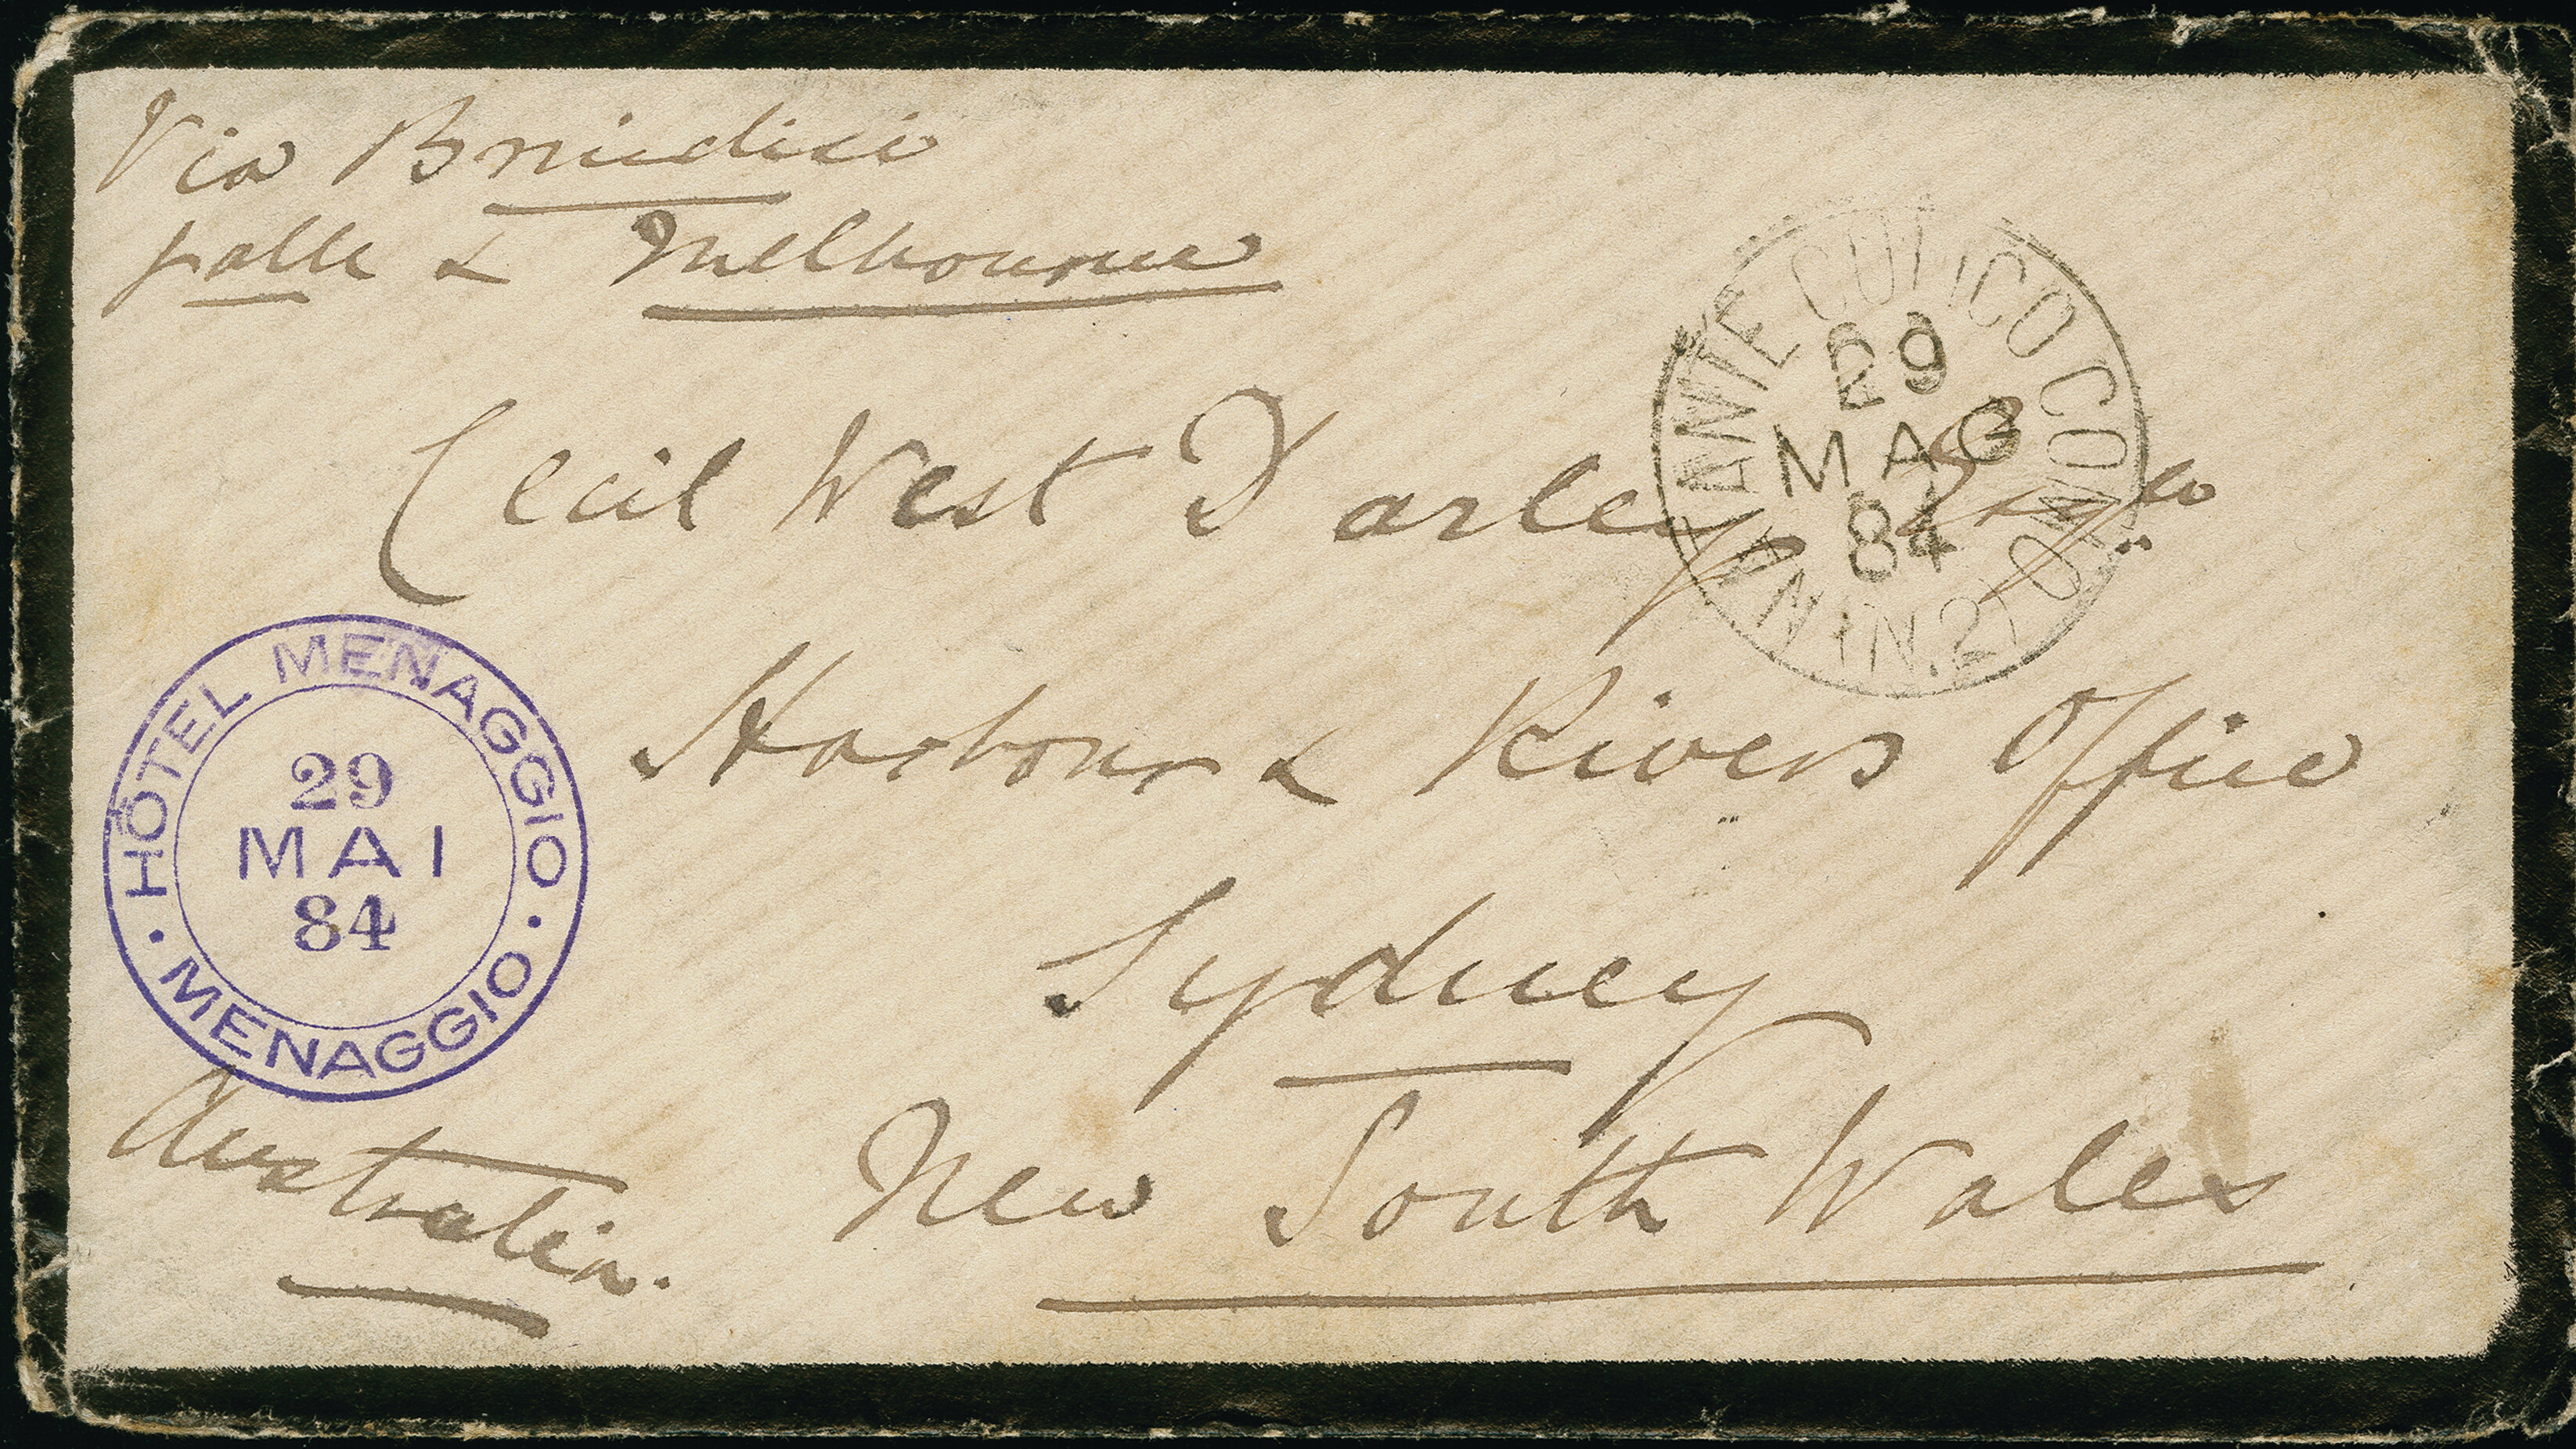 Via Brindisi
Galle & Melbourne
Cecil West Darley Esqre
Harbour & Rivers Office
Sydney
New South Wales
Australia.
HÔTEL MENAGGIO
29
MAI
84
· MENAGGIO ·
COLICO COMO (N.2)
29
MAG
84